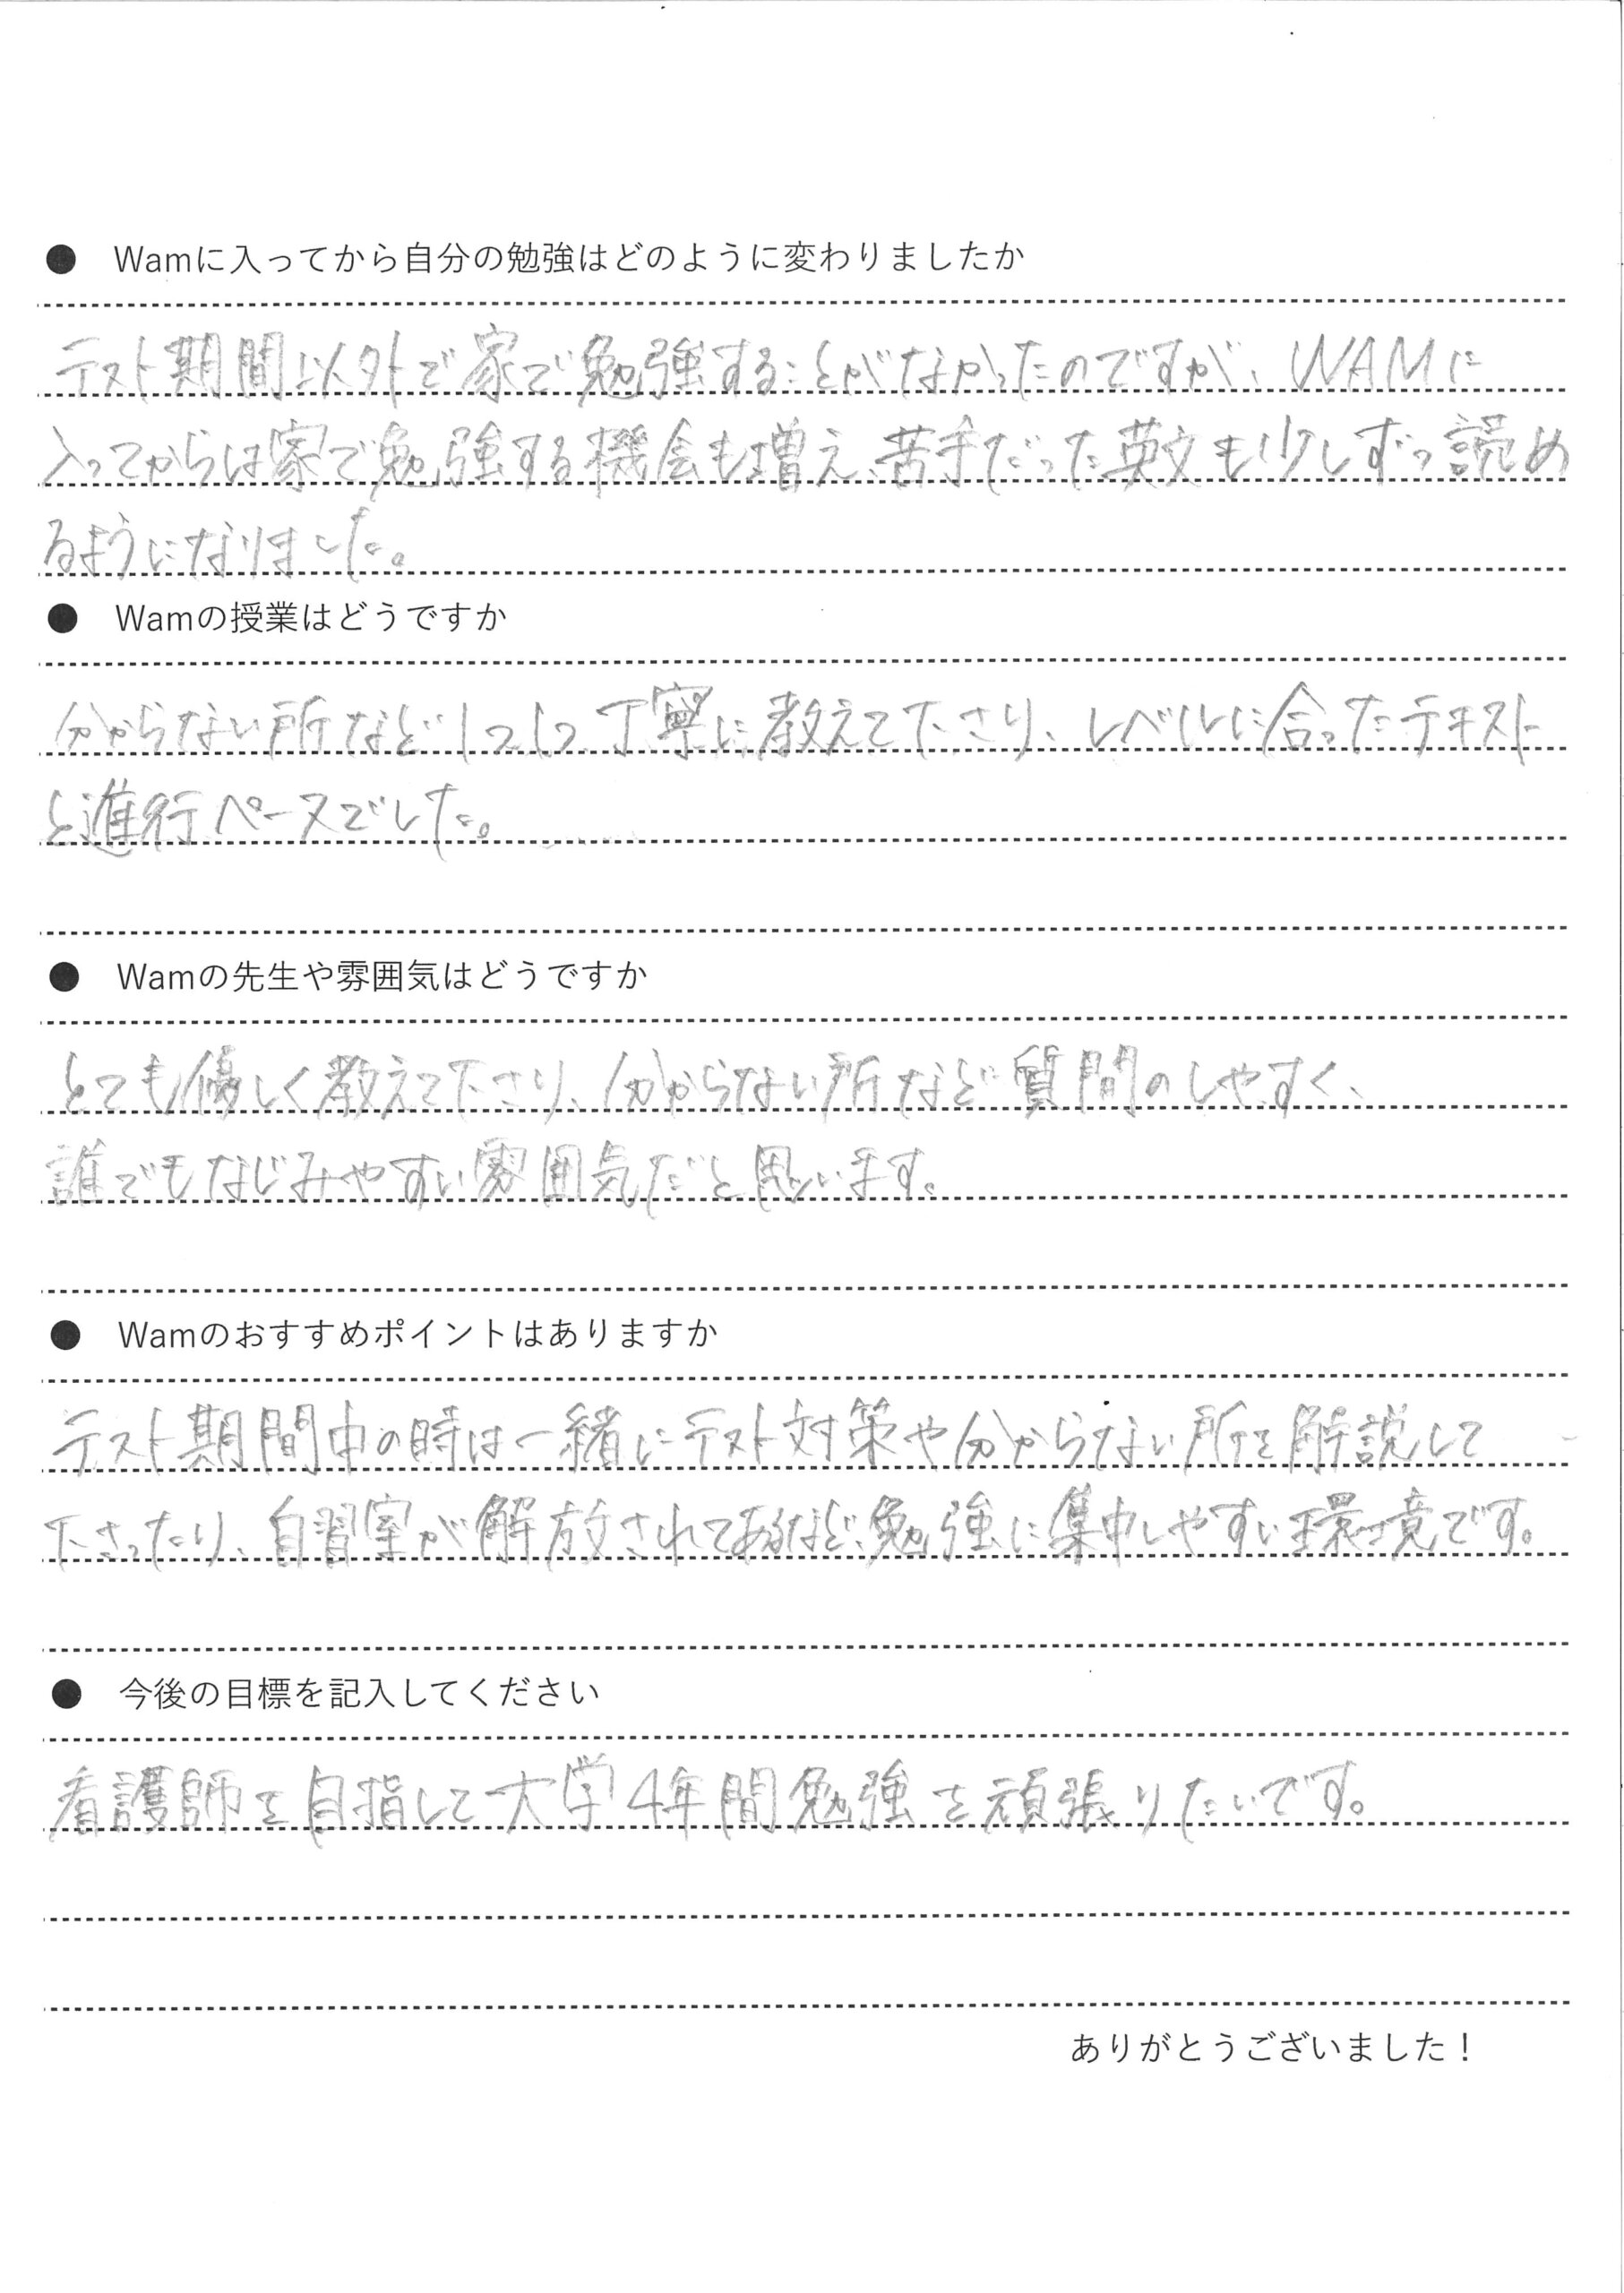 ● Wamに入ってから自分の勉強はどのように変わりましたか
テスト期間以外で家で勉強することがなかったのですが、WAMに
入ってからは家で勉強する機会も増え、苦手だった英文も少しずつ読め
るようになりました。
● Wamの授業はどうですか
分からない所など1つ1つ丁寧に教えて下さり、レベルに合ったテキスト
と進行ペースでした。
● Wamの先生や雰囲気はどうですか
とても優しく教えて下さり、分からない所など質問のしやすく、
誰でもなじみやすい雰囲気だと思います。
● Wamのおすすめポイントはありますか
テスト期間中の時は一緒にテスト対策や分からない所を解説して
下さったり、自習室が解放されてあるなど、勉強に集中しやすい環境です。
● 今後の目標を記入してください
看護師を目指して大学4年間勉強を頑張りたいです。
ありがとうございました！